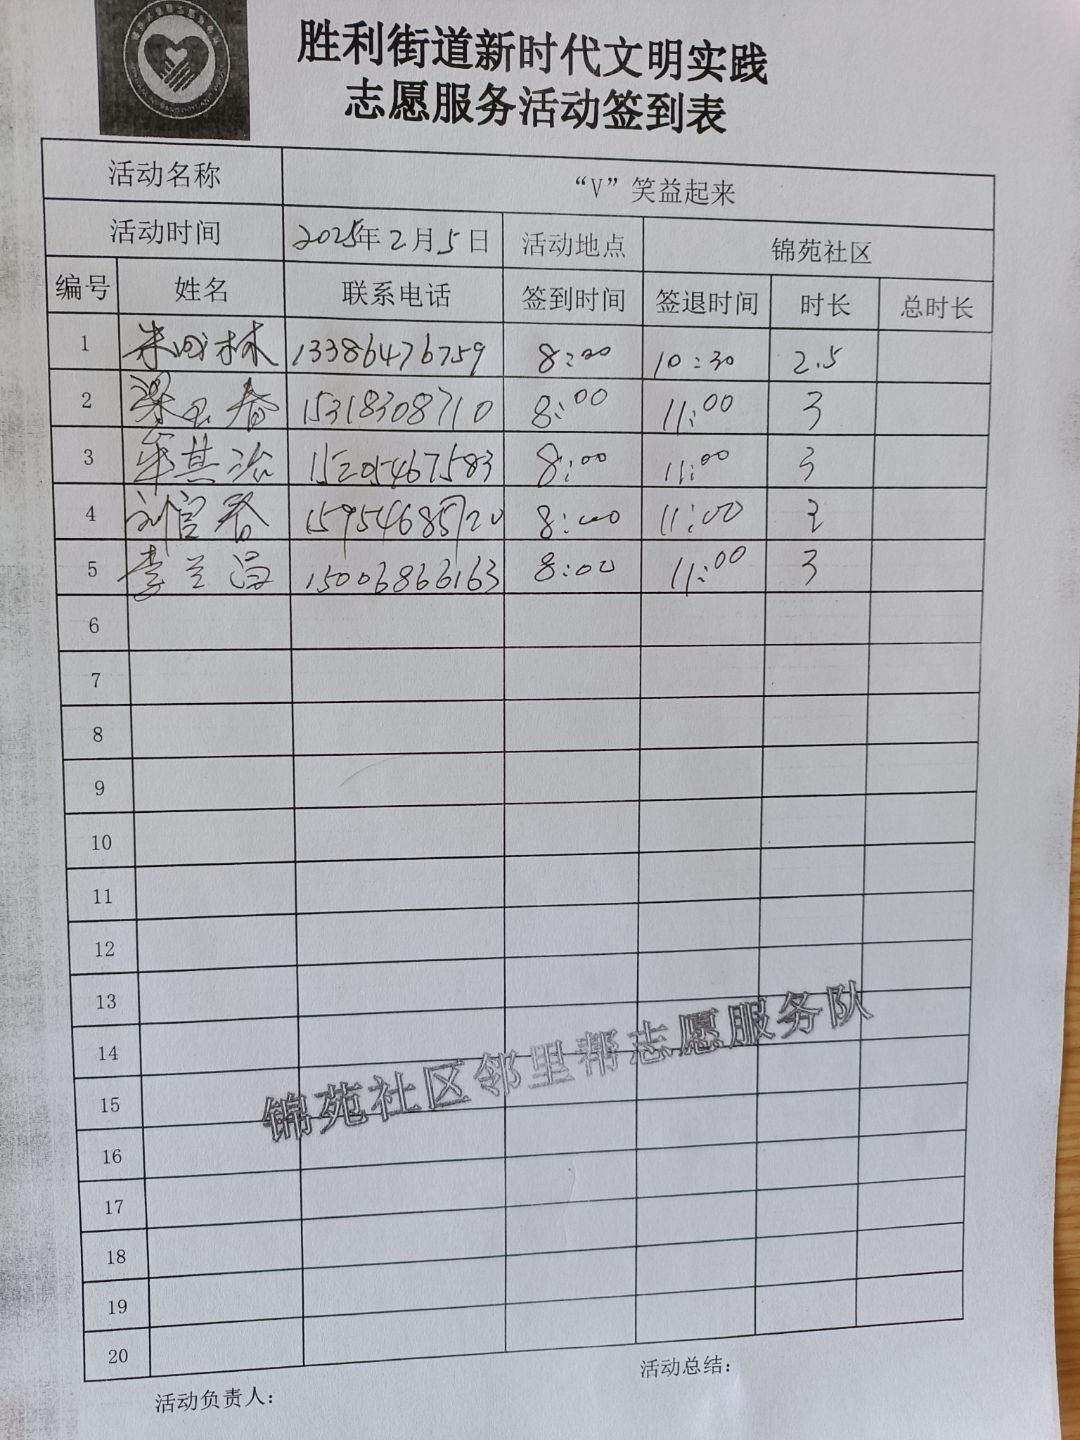 胜利街道新时代文明实践
志愿服务活动签到表
活动名称 “V”笑益起来
活动时间 2025年2月5日 活动地点 锦苑社区
编号 姓名 联系电话 签到时间 签退时间 时长 总时长
1 13386476759 8:00 10:30 2.5
2 梁玉春 15318308710 8:00 11:00 3
3 15205467583 8:00 11:00 3
4 刘官春 15954685720 8:00 11:00 3
5 李兰昌 15006866163 8:00 11:00 3
6
7
8
9
10
11
12
13
14
15
16
17
18
19
20
锦苑社区邻里帮志愿服务队
活动负责人: 活动总结: